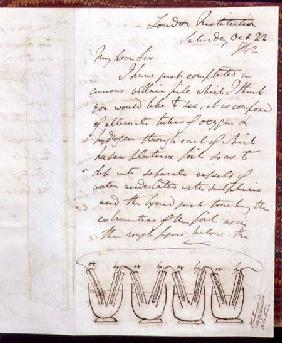 London Institution
Saturday Oct 22
1842
My dear Sir
I have just completed a
curious voltaic pile which I think
you would like to see, it is composed
of alternate tubes of oxygen &
hydrogen through each of which
passes platina foil so as to
dip into separate vessels of
water acidulated with sulphuric
acid the liquid just touching the
extremities of the foil as in
the rough figure below the
ox h ox h ox h ox h